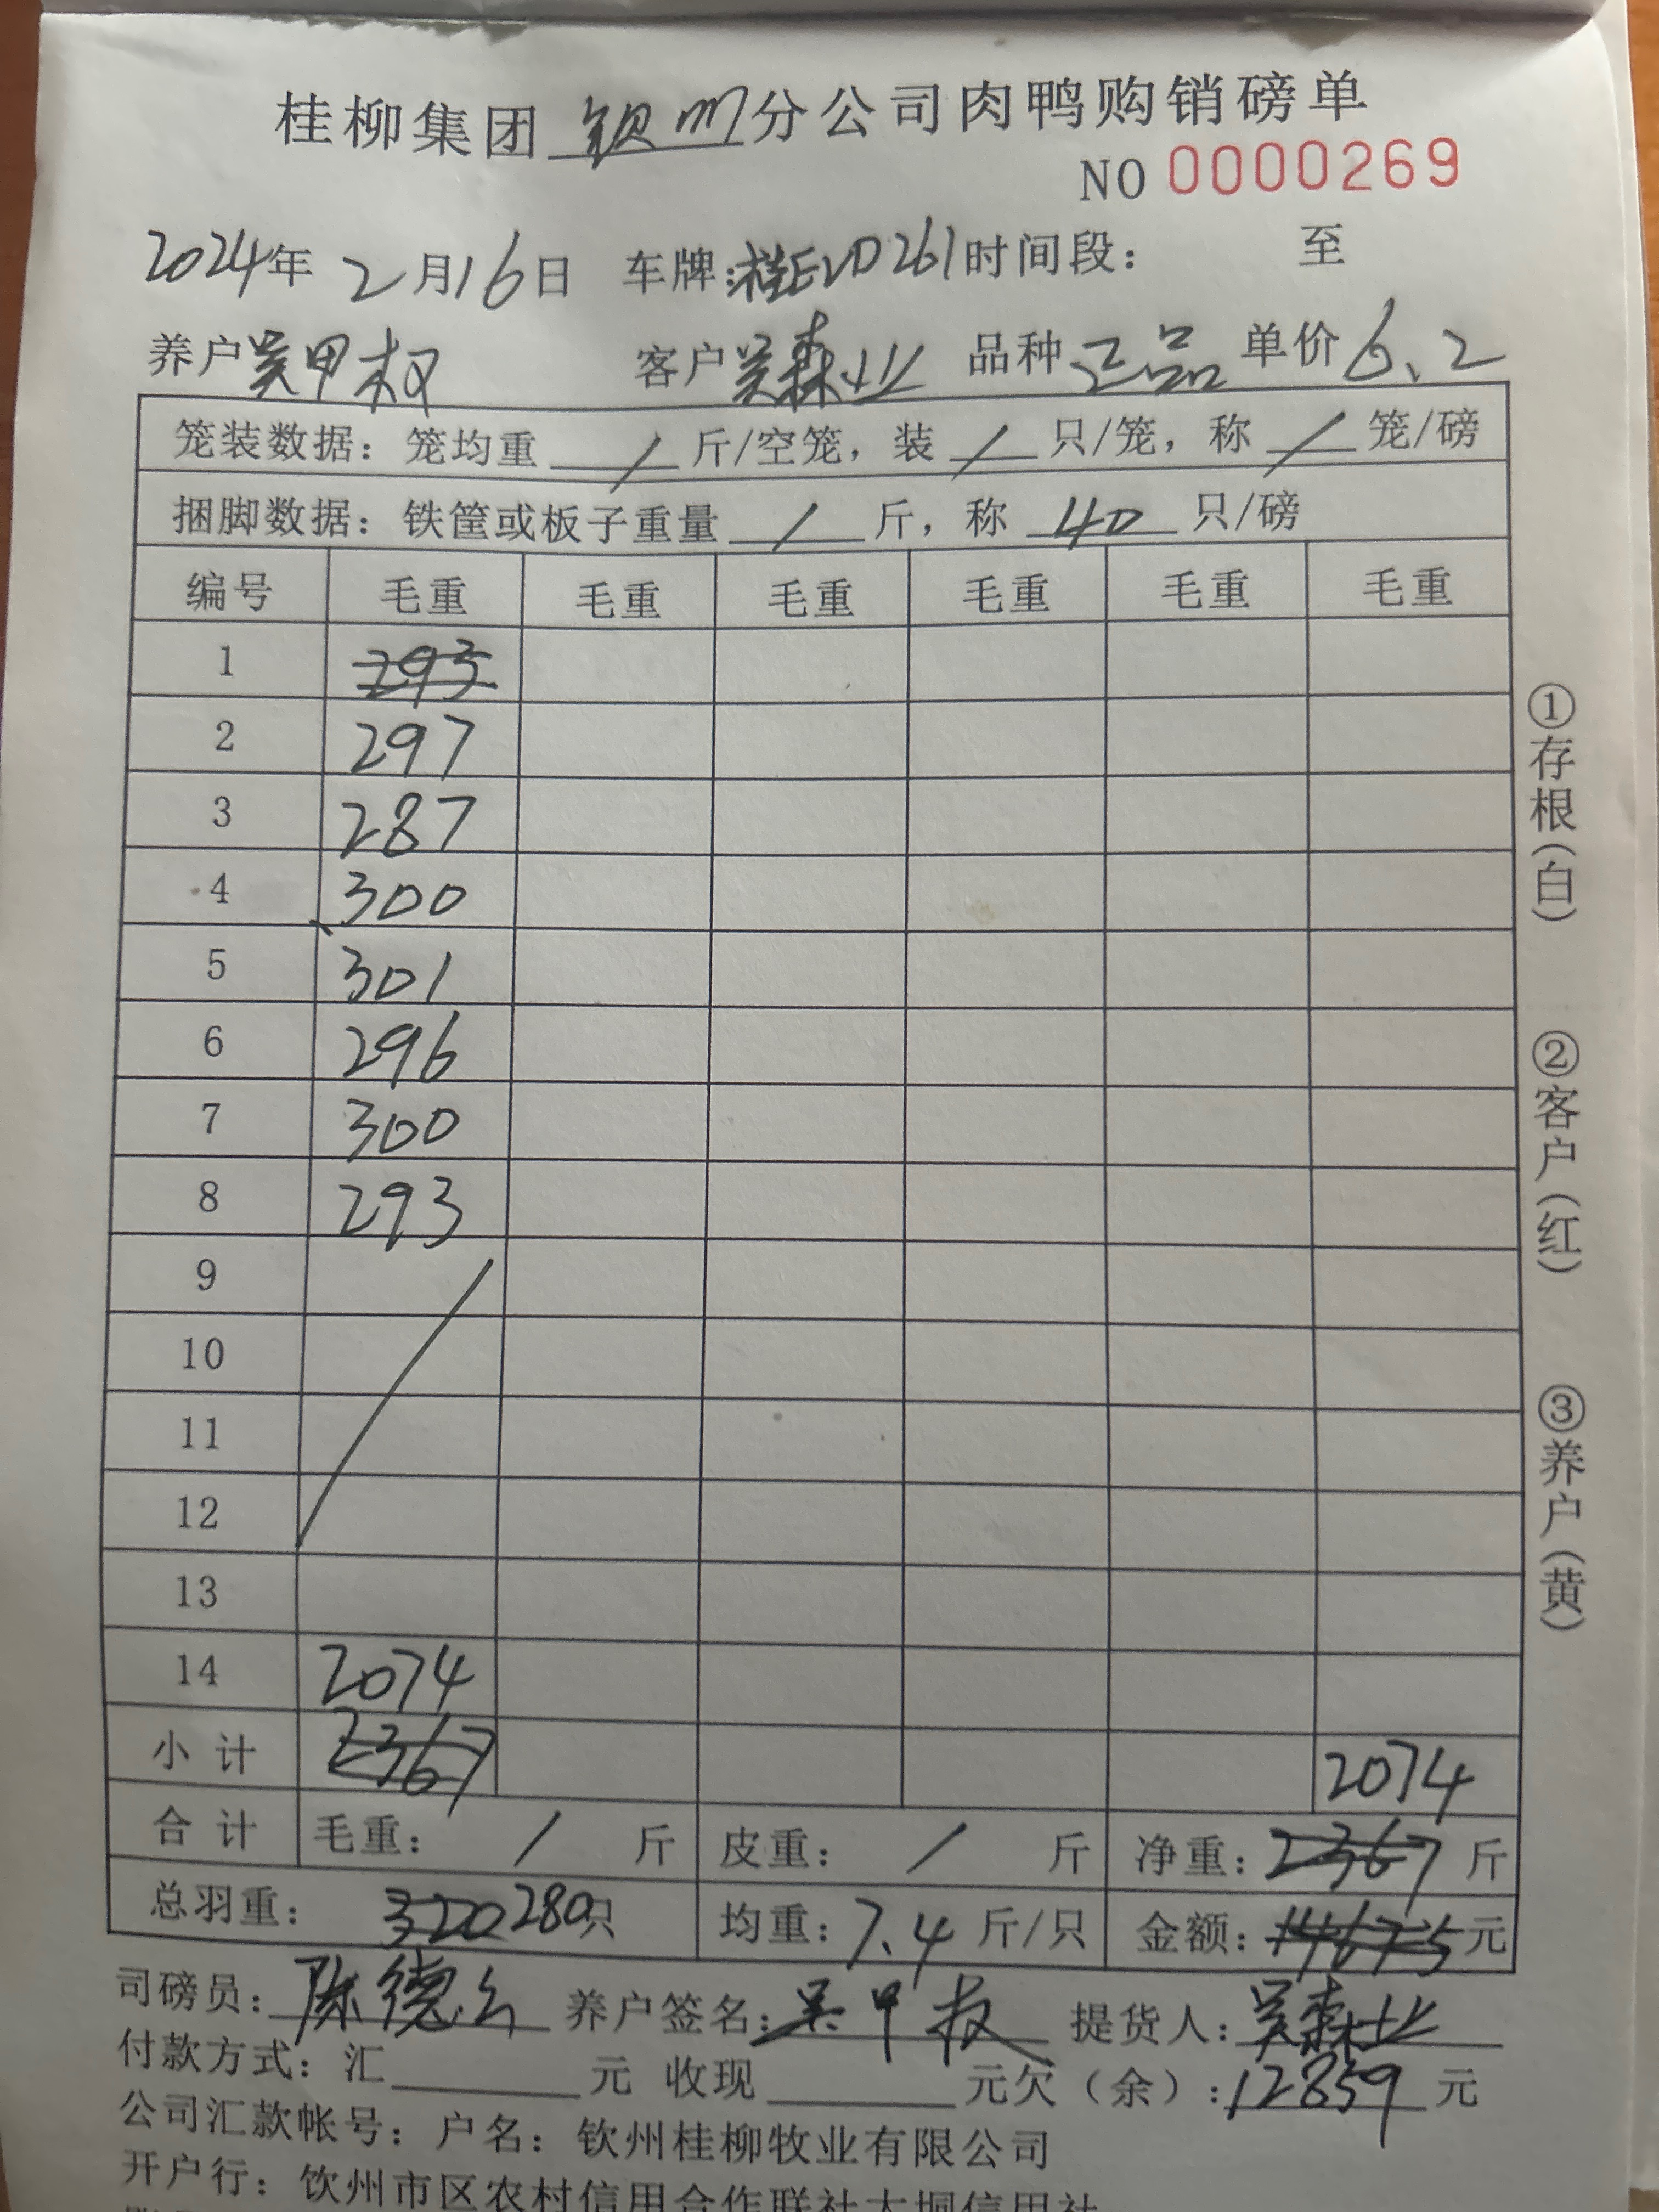 桂柳集团 钦州 分公司肉鸭购销磅单
NO 0000269
2024年 2月16日 车牌:桂EVD261 时间段: 至
养户 吴甲权 客户 吴森业 品种 正品 单价 6.2
笼装数据:笼均重 / 斤/空笼,装 / 只/笼,称 / 笼/磅
捆脚数据:铁筐或板子重量 / 斤,称 40 只/磅
编号 毛重 毛重 毛重 毛重 毛重 毛重
1 293
2 297
3 287
4 300
5 301
6 296
7 300
8 293
9
10
11
12
13
14 2074
小计 2367 2074
合计 毛重: / 斤 皮重: / 斤 净重:2367 斤
总羽重: 320 280只 均重:7.4 斤/只 金额:14675元
司磅员:陈德 养户签名:吴甲权 提货人:吴森业
付款方式:汇 元 收现 元欠(余):12859 元
公司汇款帐号:户名:钦州桂柳牧业有限公司
开户行:钦州市区农村信用合作联社大垌信用社
①存根(白)
②客户(红)
③养户(黄)